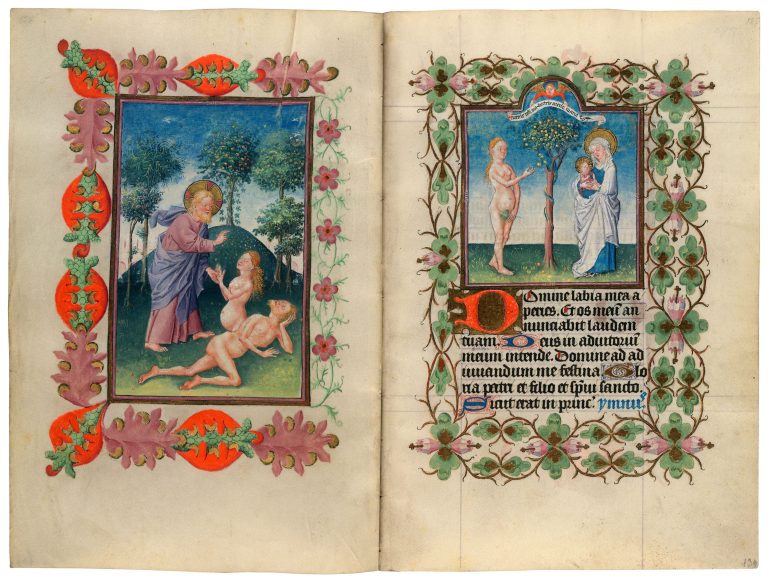 Domine labia mea a
peries. Et os meū an
nunciabit laudem
tuam. Deus in adiutoriū
meum intende. Domine ad ad
iuuandum me festina Glo
ria patri et filio et spūi sancto.
Sicut erat in princ' ymnus